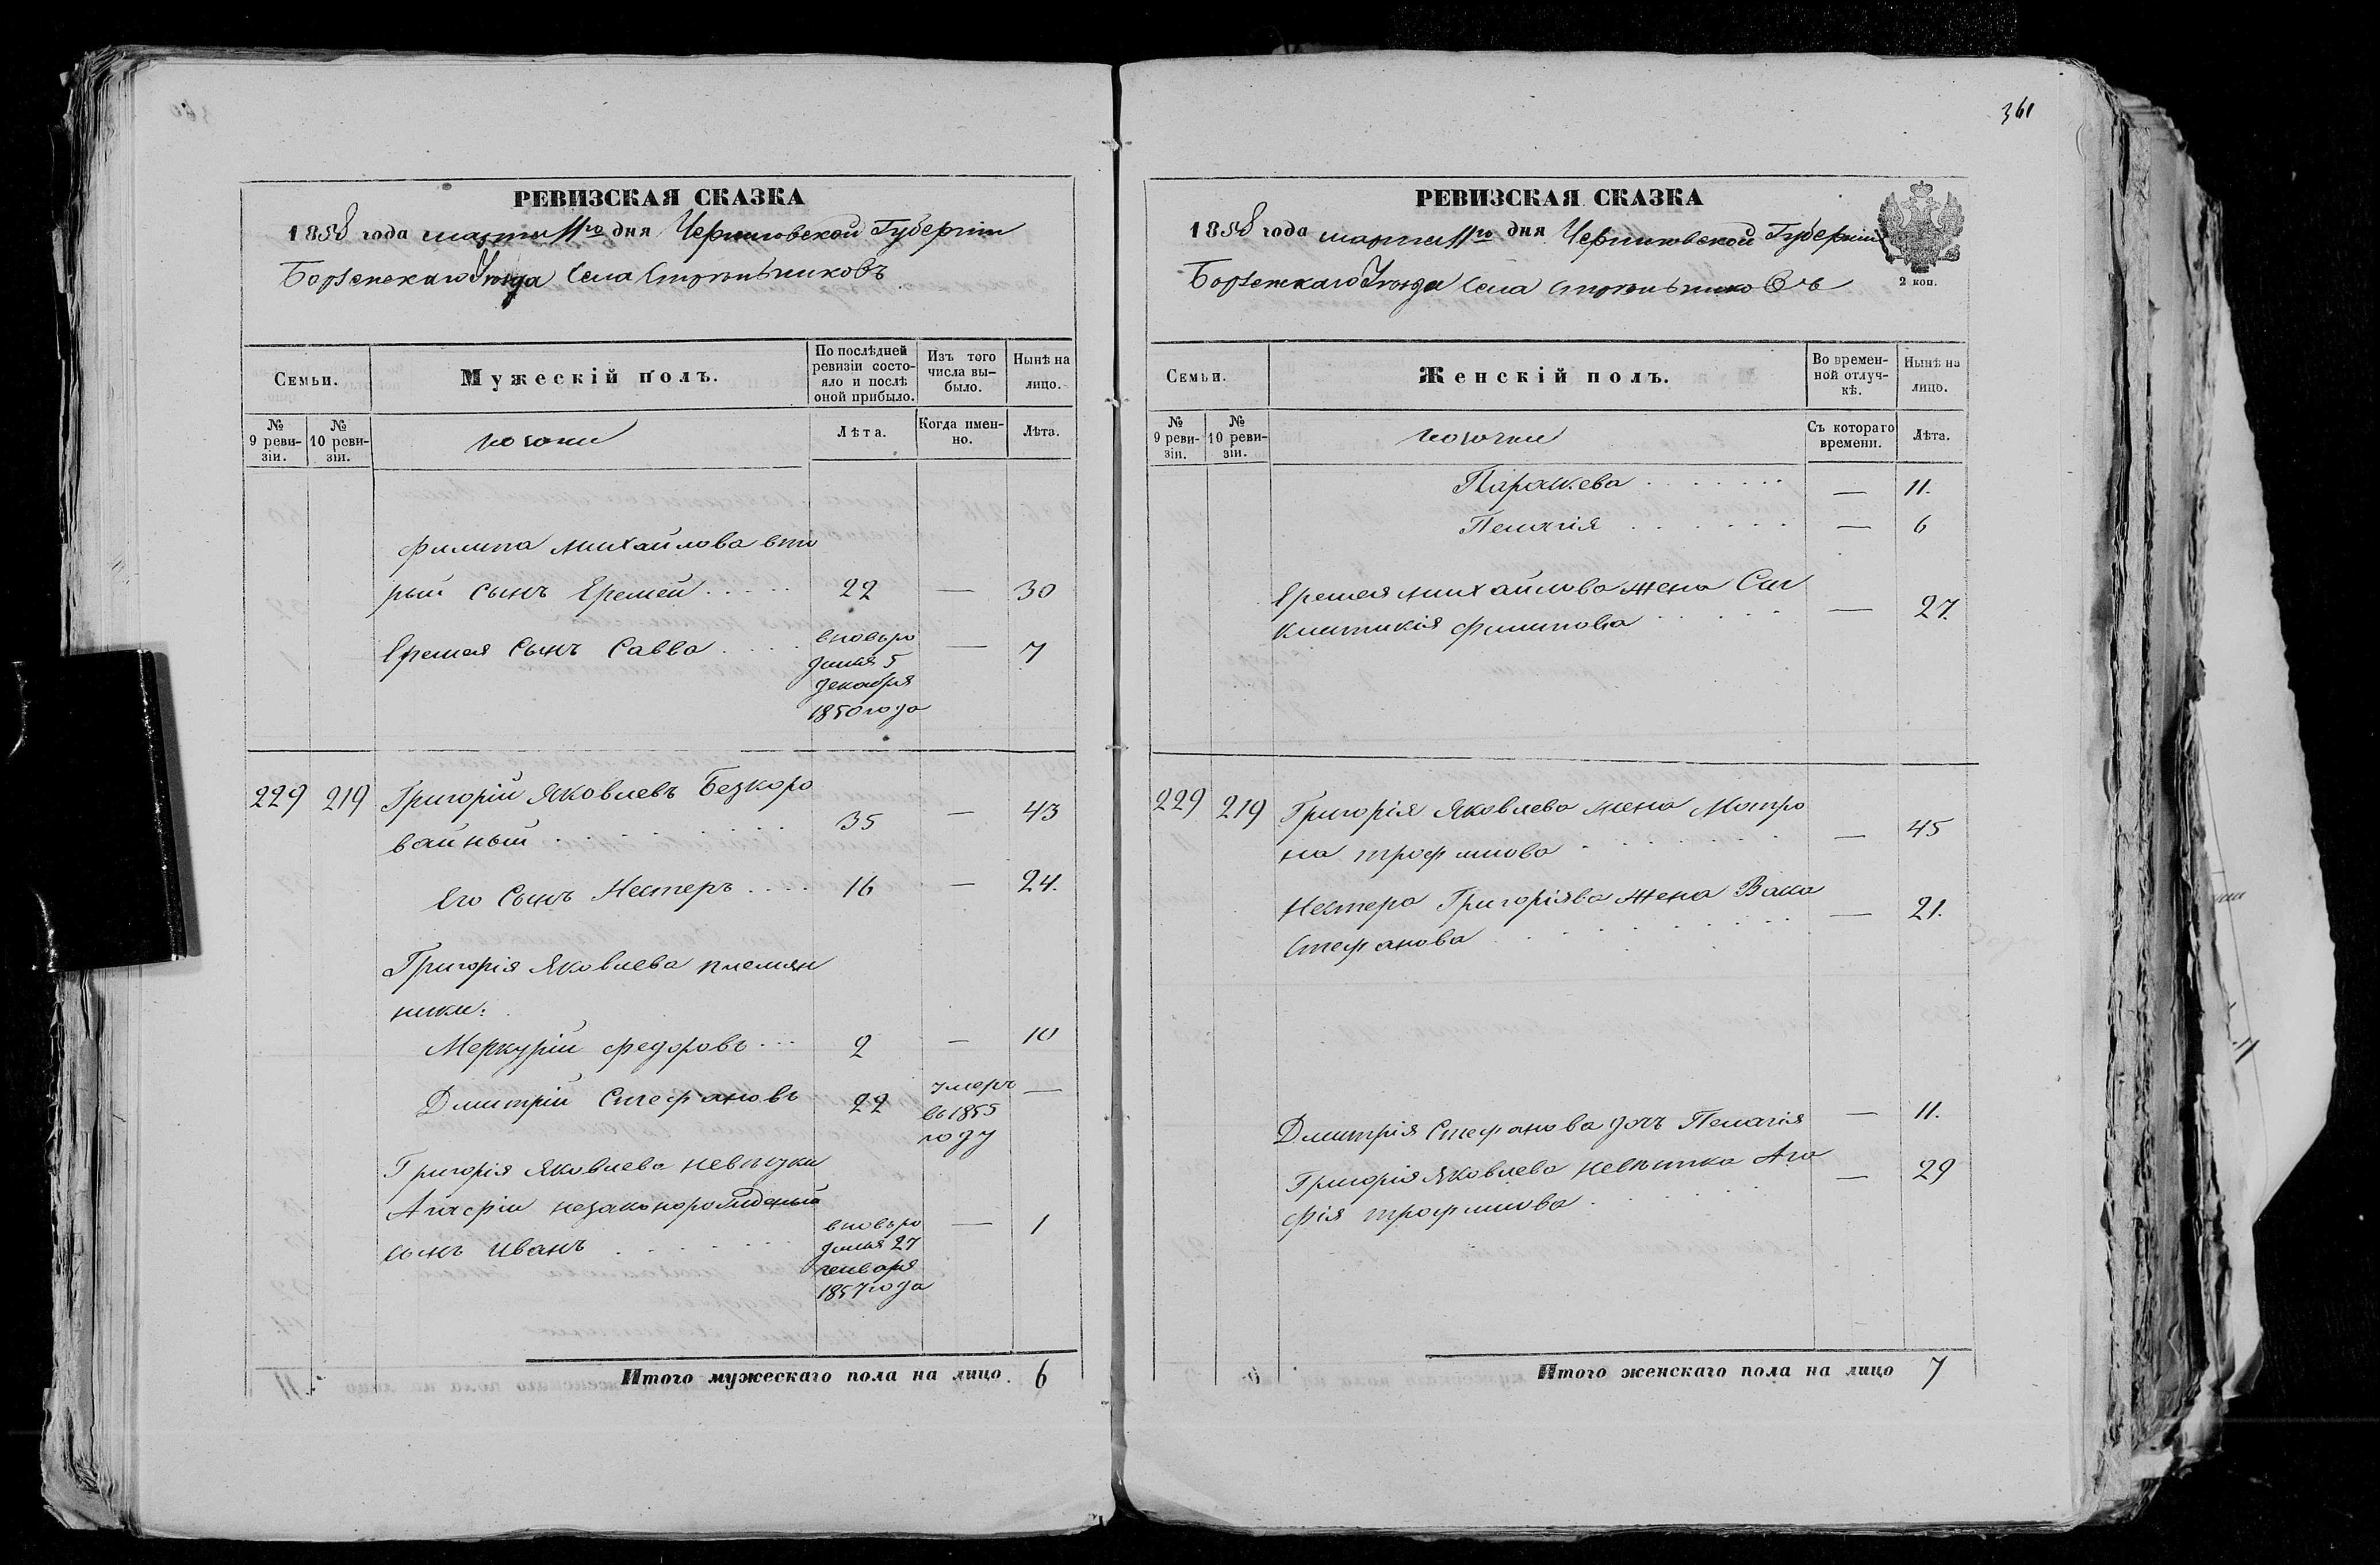 361
РЕВИЗСКАЯ СКАЗКА
1858 года марта 11го дня Черниговской Губерніи
Борзенскаго Уѣзда Села Стрѣльниковъ
Семьи.
Мужескій полъ.
По послѣдней ревизіи состояло и послѣ оной прибыло.
Изъ того числа выбыло.
Нынѣ на лицо.
№ 9 ревизіи.
№ 10 ревизіи.
Лѣта.
Когда именно.
Лѣта.
Филипа Михайлова вто
рый сынъ Еремей 22 — 30
Еремея сынъ Савва вновь ро — 7
дился 5
декабря
1850 года
229 219 Григорій Яковлевъ Безкоро
вайный 35 — 43
Его сынъ Нестеръ 16 — 24.
Григорія Яковлева племян
ники:
Меркурій Федоровъ 2 — 10
Дмитрій Стефановъ 22 умеръ —
въ 1855
году
Григорія Яковлева невѣстки
Агафіи незаконорожденый
сынъ Иванъ вновь ро — 1
дился 27
генваря
1857 года
Итого мужескаго пола на лицо. 6
РЕВИЗСКАЯ СКАЗКА
1858 года марта 11го дня Черниговской Губерніи
Борзенскаго Уѣзда Села Стрѣльниковъ
2 коп.
Семьи.
Женскій полъ.
Во временной отлучкѣ.
Нынѣ на лицо.
№ 9 ревизіи.
№ 10 ревизіи.
Съ котораго времени.
Лѣта.
Параскева — 11.
Пелагія — 6
Еремея Михайлова жена Син
клитикія Филипова — 27.
229 219 Григорія Яковлева жена Мотро
на Трофимова — 45
Нестера Григоріева жена Васса
Стефанова — 21.
Дмитрія Стефанова дочь Пелагія — 11.
Григорія Яковлева невѣстка Ага
фія Трофимова — 29
Итого женскаго пола на лицо 7